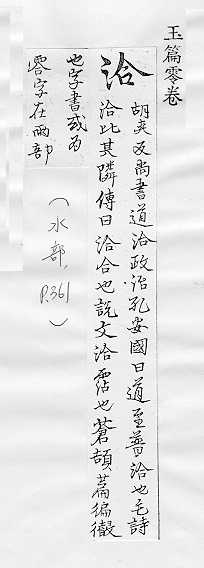 玉篇零卷
洽
胡夾反尚書道洽政治孔安國曰道至普洽也毛詩
洽比其隣傳曰洽合也說文洽霑也蒼頡篇徧徹
也字書或爲
霫字在雨部
（水部，P.361）